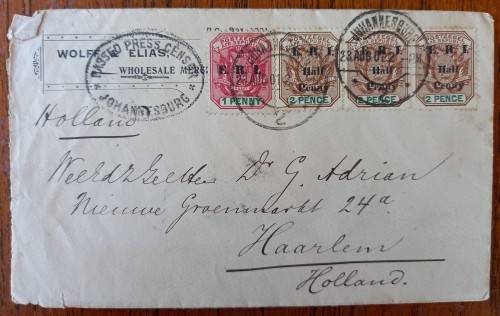 WOLFE ELIAS.
WHOLESALE MERC
PASSED PRESS CENSOR
JOHANNESBURG
E. R. I.
1 PENNY
E. R. I.
Half
Penny
2 PENCE
E. R. I.
Half
Penny
2 PENCE
E. R. I.
Half
Penny
2 PENCE
JOHANNESBURG
28 AUG 02
2
Holland
Weledz Geb Dr G. Adrian
Nieuwe Groenmarkt 24a
Haarlem
Holland.